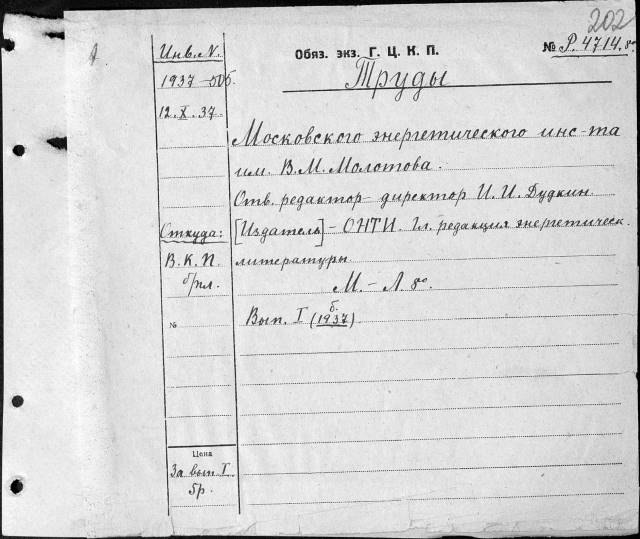 202
Обяз. экз. Г. Ц. К. П.
№ Р.4714.8°
Инв. N.
Труды
1937 — 505.
12. X. 37.
Московского энергетического инс-та
им. В. М. Молотова.
Отв. редактор – директор И. И. Дудкин.
Откуда:
[Издатель] – ОНТИ. Гл. редакция энергетическ.
В. К. П.
литературы.
б/пл.
М. – Л. 8°.
№
Вып. I (1937)
б.
Цена
За вып I.
5р.